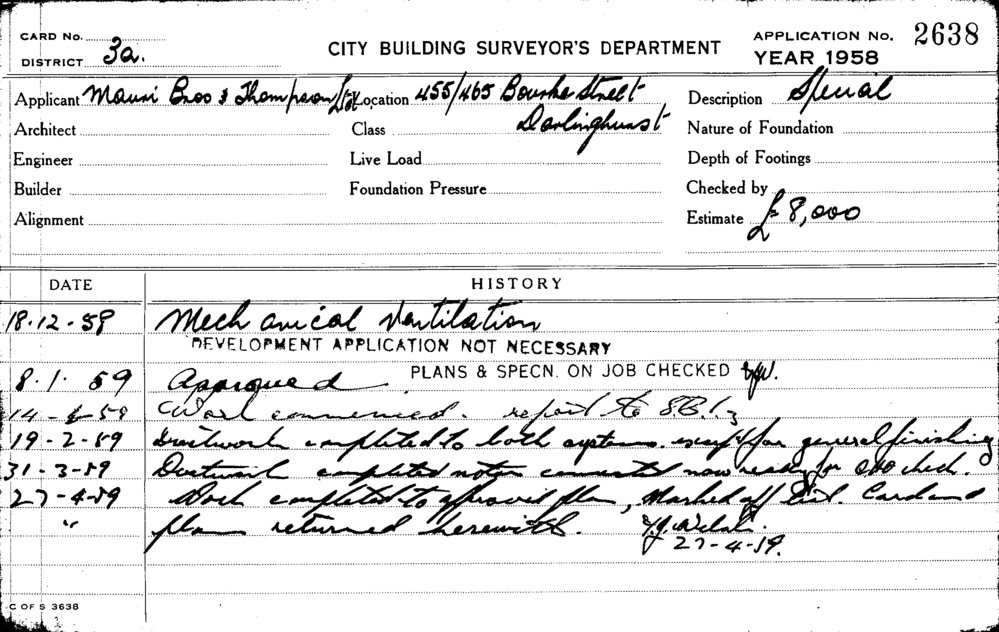 CARD No.
DISTRICT 3a.
CITY BUILDING SURVEYOR'S DEPARTMENT
APPLICATION No. 2638
YEAR 1958
Applicant Mauri Bros & Thompson Ltd Location 455/465 Bourke Street Description Special
Architect Class Darlinghurst Nature of Foundation
Engineer Live Load Depth of Footings
Builder Foundation Pressure Checked by
Alignment Estimate £8,000
DATE HISTORY
18.12.58 Mechanical Ventilation
DEVELOPMENT APPLICATION NOT NECESSARY
PLANS & SPECN. ON JOB CHECKED
8.1.59 Approved
Work commenced. report to SBI
19-2-59 Ductwork completed to both systems except for general finishing
31-3-59 Ductwork completed motor connected now ready for check.
27-4-59 Work completed to approved plan, Marked off List. Card and
" plan returned herewith.
27-4-59.
C OF S 3638